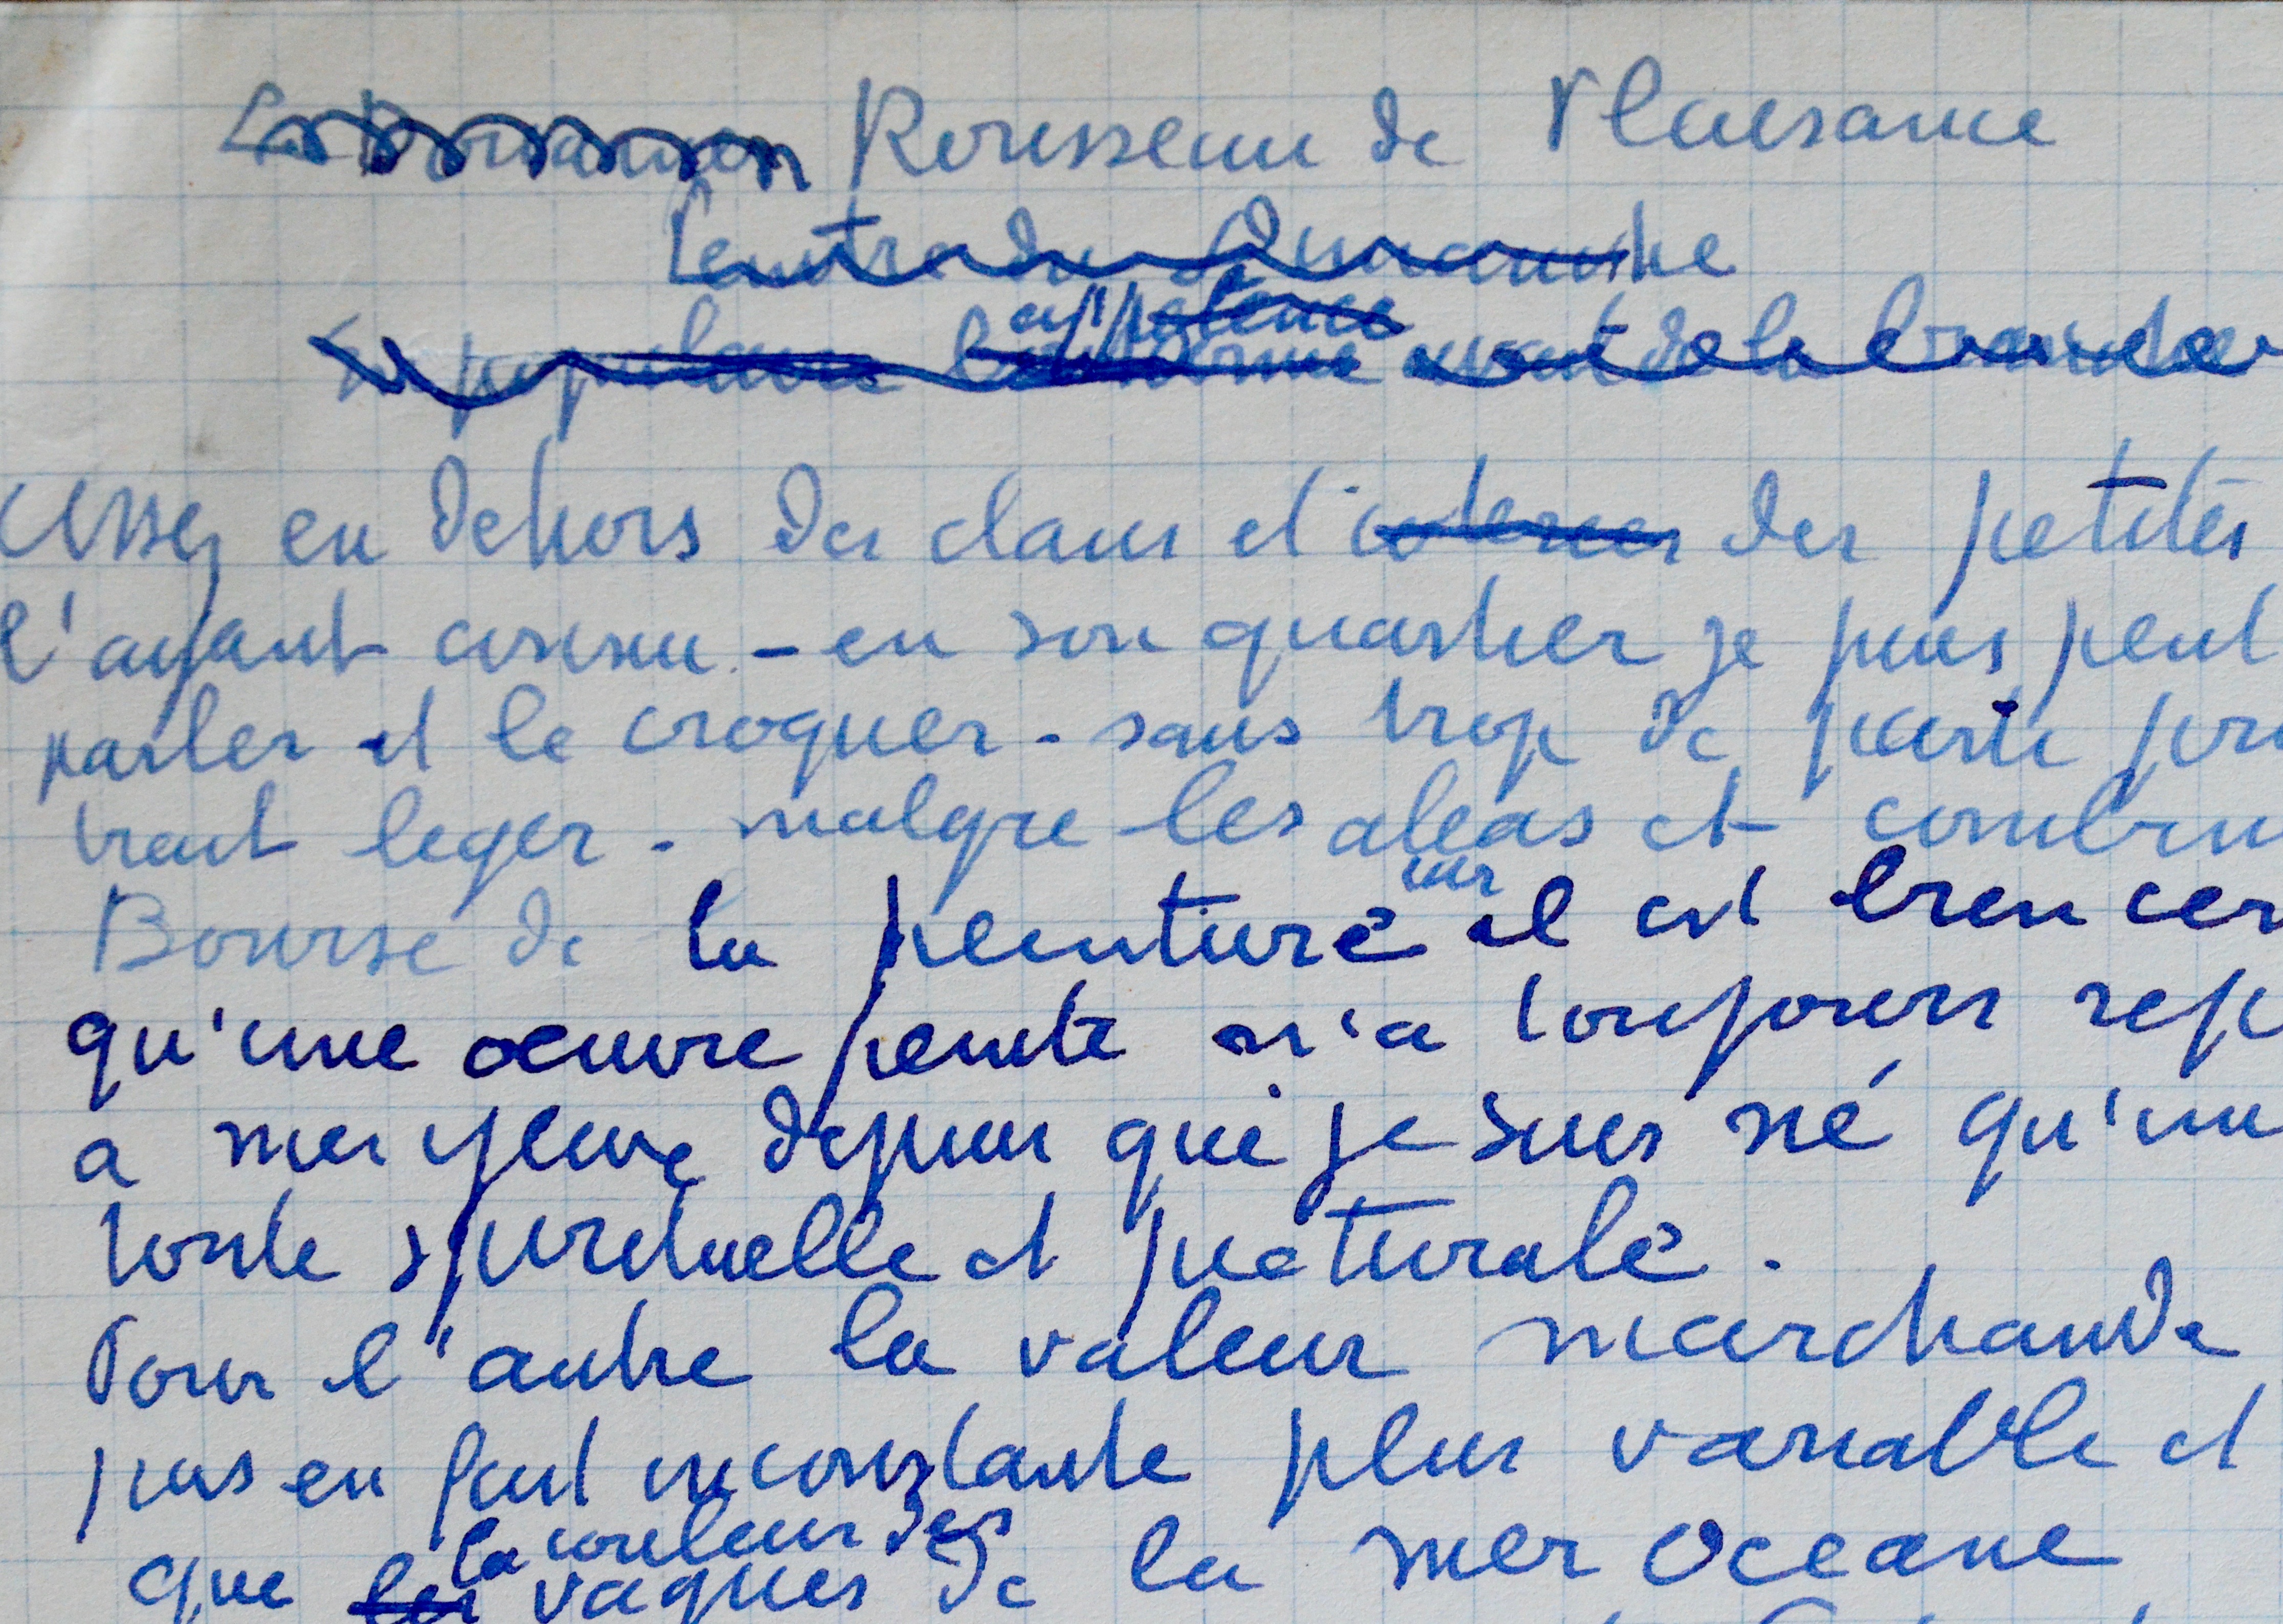 Rousseau de Plaisance
Peintre du Dimanche
populaire
Assez en dehors des clans et des petites
l'ayant connu - en son quartier je puis peut
parler et le croquer - sans trop de parti pri
trait leger - malgre les aleas et
Bourse de la peinture car il est bien cer
qu'une oeuvre peinte n'a toujours rep
a mes yeux depuis que je suis né qu'un
toute spirituelle et picturale.
Pour l'autre la valeur marchande
puis en fait inconstante plus variable et
la couleur des
que les vagues de la mer Oceane